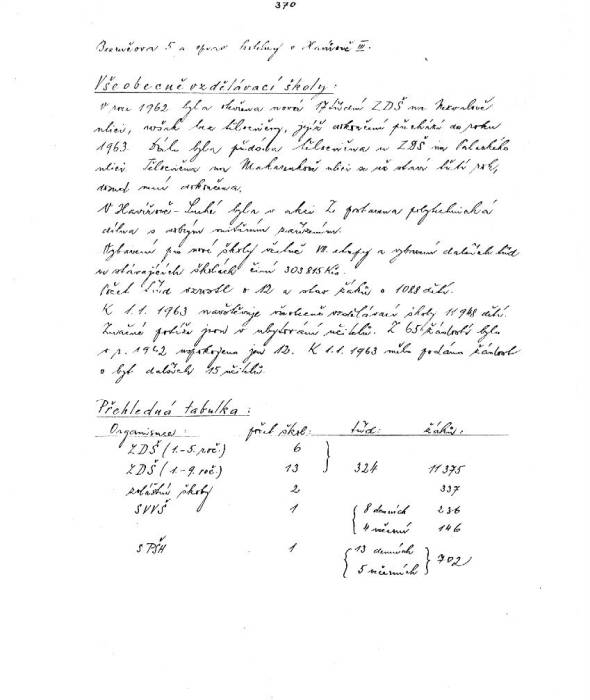 370
5 a oprav v Havířově III.
Všeobecně vzdělávací školy:
V roce 1962 byla otevřena nová 17 třídní ZDŠ na Nezvalově
ulici, avšak bez tělocvičny, jejíž dokončení přechází do roku
1963. Dále byla předána tělocvična u ZDŠ na Palackého
ulici. Tělocvična na Makarenkově ulici se už staví třetí rok,
není dokončena.
V Havířově-Suché byla v akci Z postavena polytechnická
dílna s vnitřním zařízením.
Vybavení pro nové školy včetně VII. etapy a vybavení dalších tříd
ve stávajících školách činí 303 815 Kčs.
Počet tříd vzrostl o 12 a stav žáků o 1088 dětí.
K 1.1. 1963 navštěvuje všeobecně vzdělávací školy 11 948 dětí.
Značné potíže jsou v ubytování učitelů. Z 65 žádostí bylo
v r. 1962 uspokojeno jen 12. K 1.1. 1963 podáno žádost
o byt dalších 15 učitelů.
Přehledná tabulka:
Organisace: počet škol: tříd: žáků:
ZDŠ (1.-5. roč.) 6
ZDŠ (1.-9. roč.) 13 } 324 11 375
zvláštní školy 2 337
SVVŠ 1 { 8 denních 236
4 večerní 146
SPŠH 1 { 13 denních } 702
5 večerních